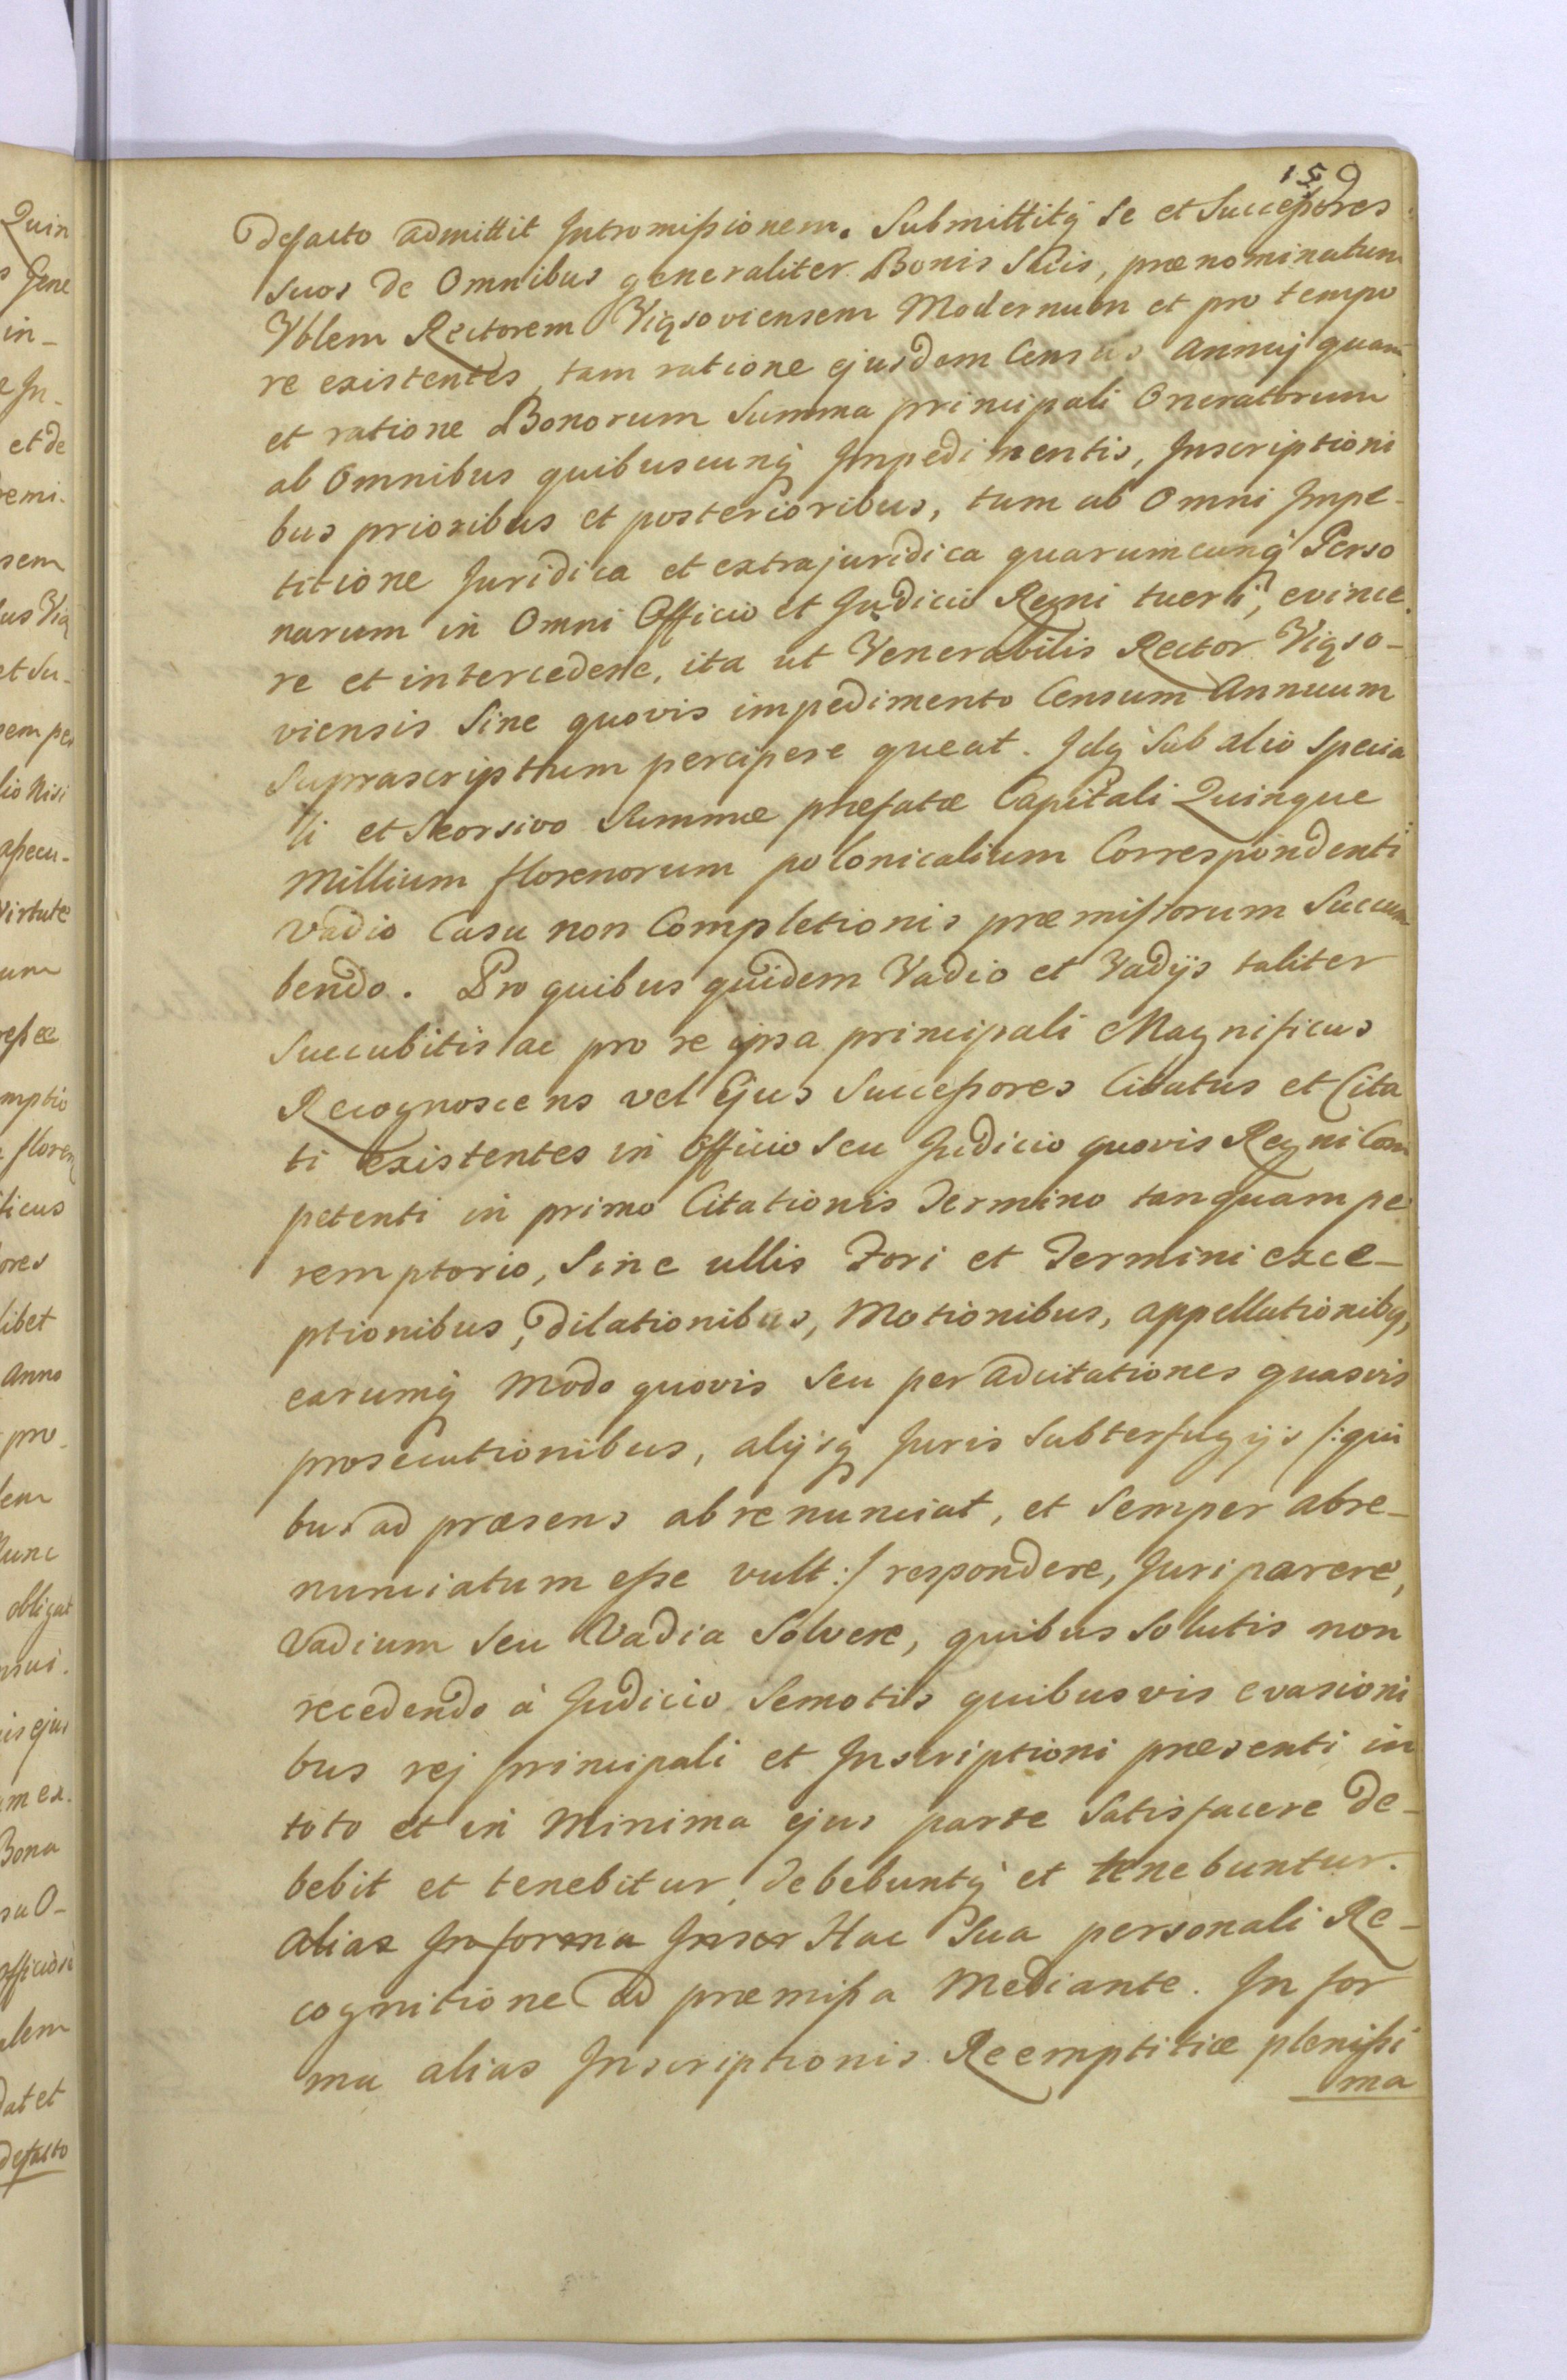 159
defacto admittit Intromissionem. Submittitq Se et Successores
suos de Omnibus generaliter Bonis Suis, prænominatum
Vblem Rectorem Viqsoviensem Modernum et pro tempo
re existentes, tam ratione ejusdem Census Annuj quam
et ratione Bonorum Summa principali Oneratorum
ab Omnibus quibuscunq Impedimentis, Inscriptioni
bus prioribus et posterioribus, tum ab Omni Impe-
titione Juridica et extrajuridica quarumcunq Perso
narum in Omni Officio et Judicio Regni tueri, evince
re et intercedere, ita ut Venerabilis Rector Viqso-
viensis Sine quovis impedimento Censum Annuum
Suprascriptum percipere queat. Idq Sub alio specia
li et Seorsivo Summæ præfatæ Capitali Quinque
Millium florenorum polonicalium Correspondenti
Vadio Casu non Completionis præmissorum Succum
bendo. Pro quibus quidem Vadio et Vadijs taliter
Succubitis ac pro re ipsa principali Magnificus
Recognoscens vel Ejus Successores Citatus et Cita
ti existentes in Officio Seu Judicio quovis Regni Com
petenti in primo Citationis Termino tanquam pe
remptorio, Sine ullis Fori et Termini exce-
ptionibus, dilationibus, Motionibus, appellationibq,
earumq modo quovis Seu per adcitationes quasvis
prosecutionibus, alijsq Juris Subterfugijs /:qui
bus ad præsens abrenunciat, et Semper abre-
nunciatum esse vult:/ respondere, Juri parere,
Vadium Seu Vadia Solvere, quibus Solutis non
recedendo à Judicio Semotis quibusvis evasioni
bus rej principali et Inscriptioni præsenti in
toto et in Minima ejus parte Satisfacere de-
bebit et tenebitur, debebuntq et tenebuntur.
Alias In forma Inscr Hac Sua personali Re-
cognitione ad præmissa Mediante. In for
ma alias Inscriptionis Reemptitiæ plenissi
ma